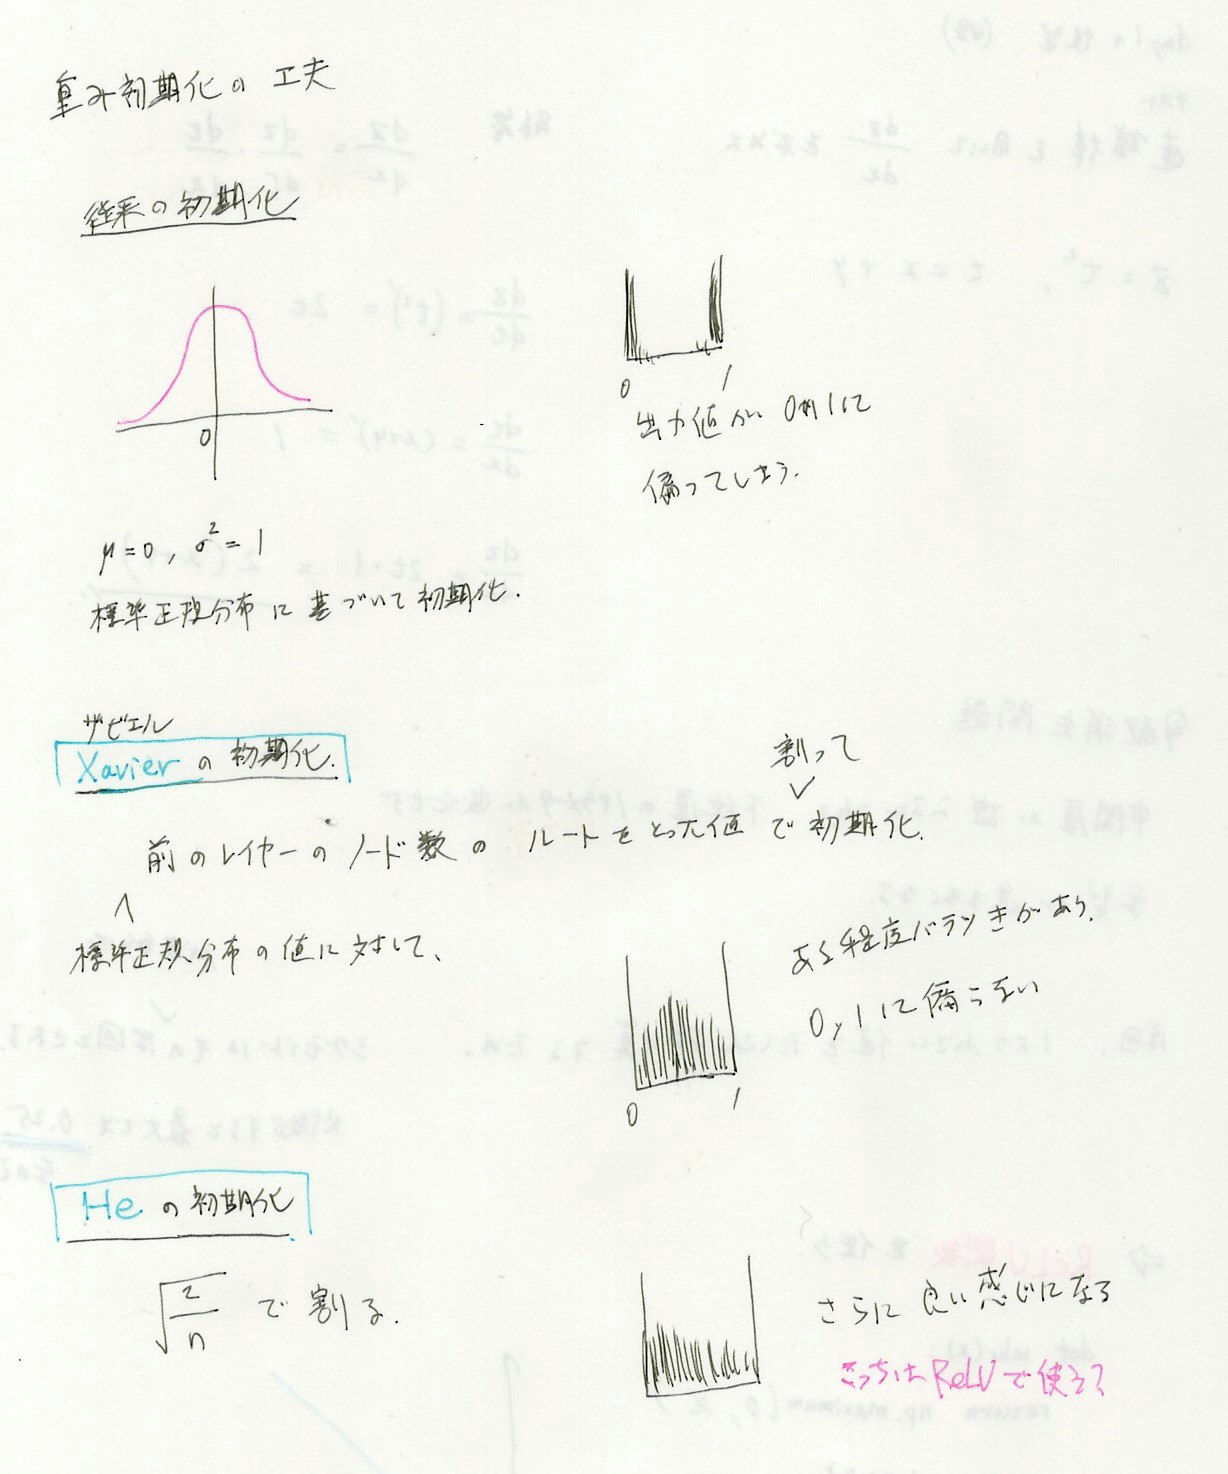 重み初期化の工夫
従来の初期化
0
0 1
出力値が 0か1に
偏ってしまう.
μ=0, σ²=1
標準正規分布に基づいて初期化.
ザビエル
Xavierの初期化.
割って
前のレイヤーのノード数のルートをとった値で初期化.
標準正規分布の値に対して、
ある程度バラツキがあり.
0,1に偏らない
0 1
Heの初期化
√2/n で割る.
さらに良い感じになる
こっちはReLUで使う?